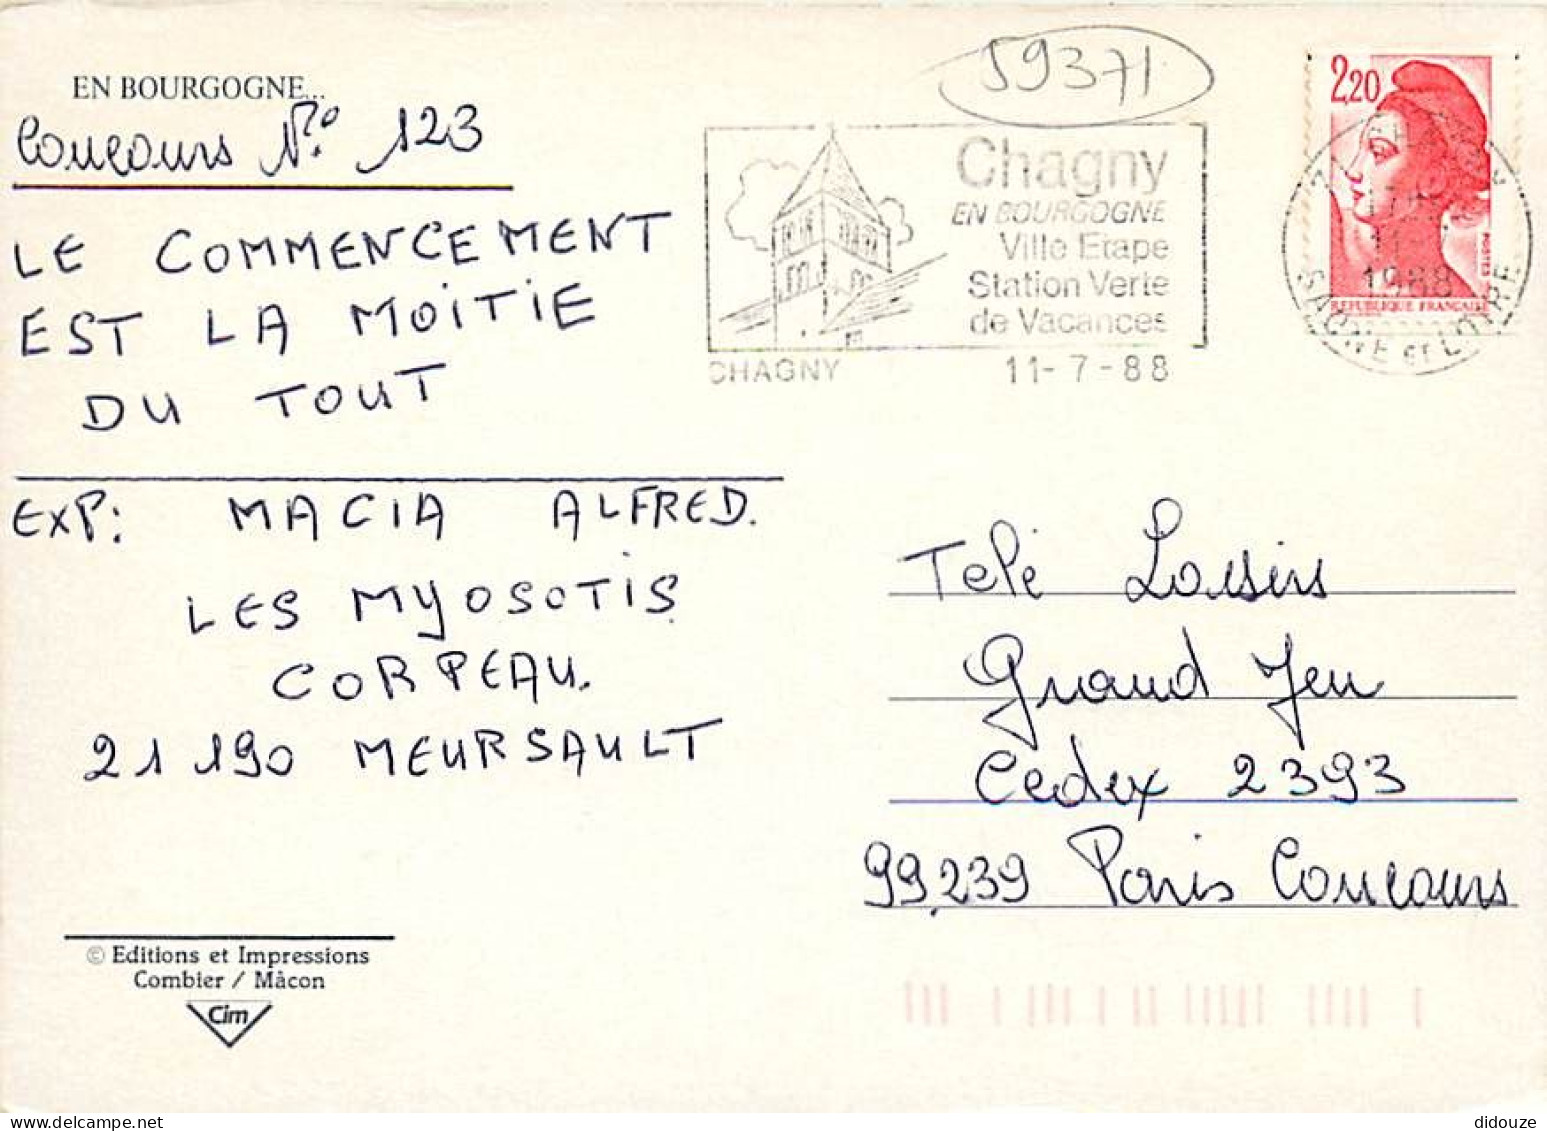 EN BOURGOGNE...
Concours N° 123
LE COMMENCEMENT
EST LA MOITIE
DU TOUT
EXP: MACIA ALFRED.
LES MYOSOTIS
CORPEAU.
21190 MEURSAULT
© Editions et Impressions
Combier / Mâcon
Cim
59371
Chagny
EN BOURGOGNE
Ville Etape
Station Verte
de Vacances
CHAGNY 11-7-88
2,20
POSTES
REPUBLIQUE FRANÇAISE
1988
SAONE ET LOIRE
Télé Loisirs
Grand Jeu
Cedex 2393
99.239 Paris Concours
didouze